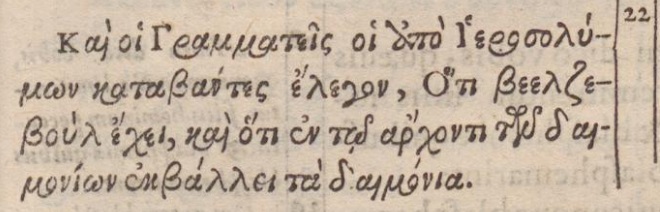 Καὶ οἱ Γραμματεῖς οἱ ἀπὸ Ἱεροσολύ- 22
μων καταβάντες ἔλεγον, Ὅτι βεελζε-
βοὺλ ἔχει, καὶ ὅτι ἐν τῷ ἄρχοντι τῶν δαι-
μονίων ἐκβάλλει τὰ δαιμόνια.